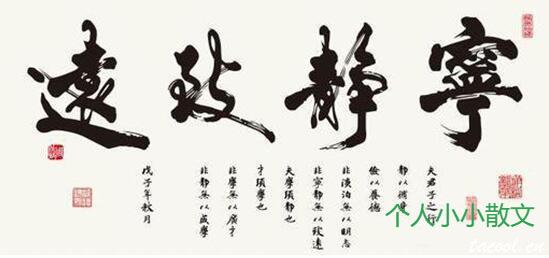 寧靜致遠
夫君子之行
靜以修身
儉以養德
非淡泊無以明志
非寧靜無以致遠
夫學須靜也
才須學也
非學無以廣才
非靜無以成學
戊子年秋月
个人小小散文
tacool.cn